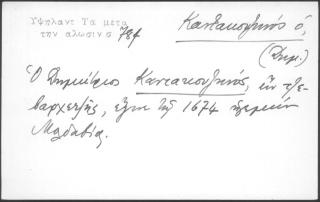 Υψηλαντ Τα μετα
την αλωσιν σ 784
Καντακουζηνός ὁ,
(Δημ.)
Ὁ Δημήτριος Καντακουζηνός,
ἔγινε τῷ 1674 ἡγεμὼν
Μολδαβίας.